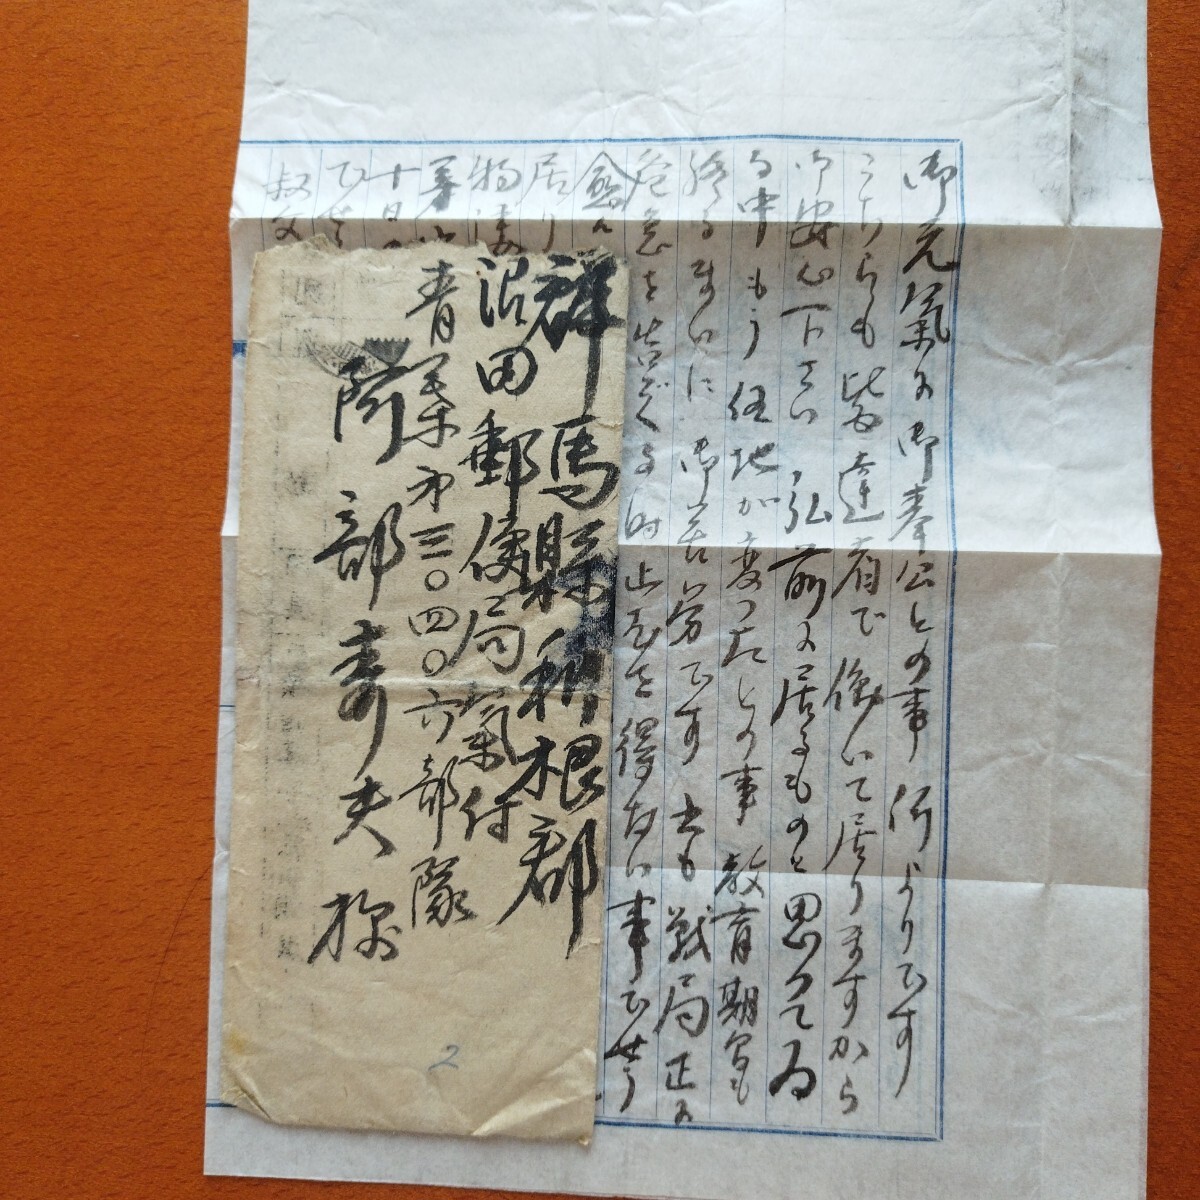 御元氣に御奉公との事 何よりです
こちらも皆達者で働いて居りますから
御安心下さい 弘前に居るものと思つてゐ
る中もう任地が変つたとの事 教育期間も
終るまいに 御苦労です 尤も戦局正に
危急を告ぐる時 止むを得ない事でせう
愈々
居り
物凄
十日
でせ
叔父
群馬縣利根郡
沼田郵便局氣付
青葉第三〇四〇六部隊
阿部壽夫様
2